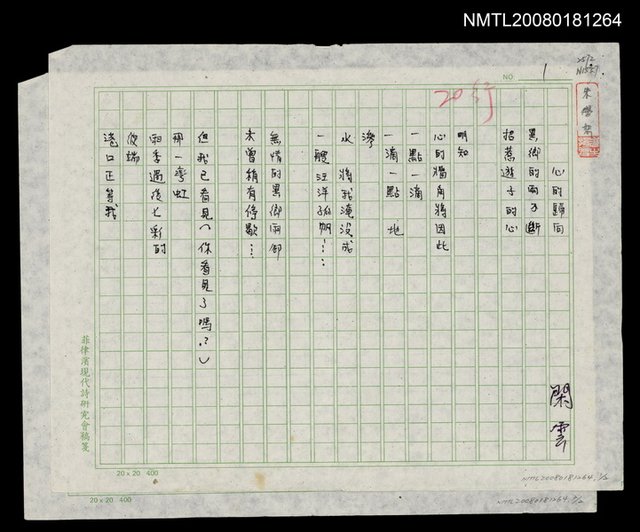 NMTL20080181264
NO. 1
20行
心的歸向
閑雲
異鄉的雨不斷
招惹遊子的心
明知
心的牆角將因此
一點一滴
一滴一點地
滲
水將我淹沒成
一艘汪洋孤帆……
無情的異鄉雨卻
未曾稍有停歇……
但我已看見(你看見了嗎??)
那一彎虹
雨季過後七彩的
彼端
港口正等我
菲律濱現代詩研究會稿箋
20×20 400
NMTL20080181264, 1/2
20×20 400
NMTL20080181264, 2/2